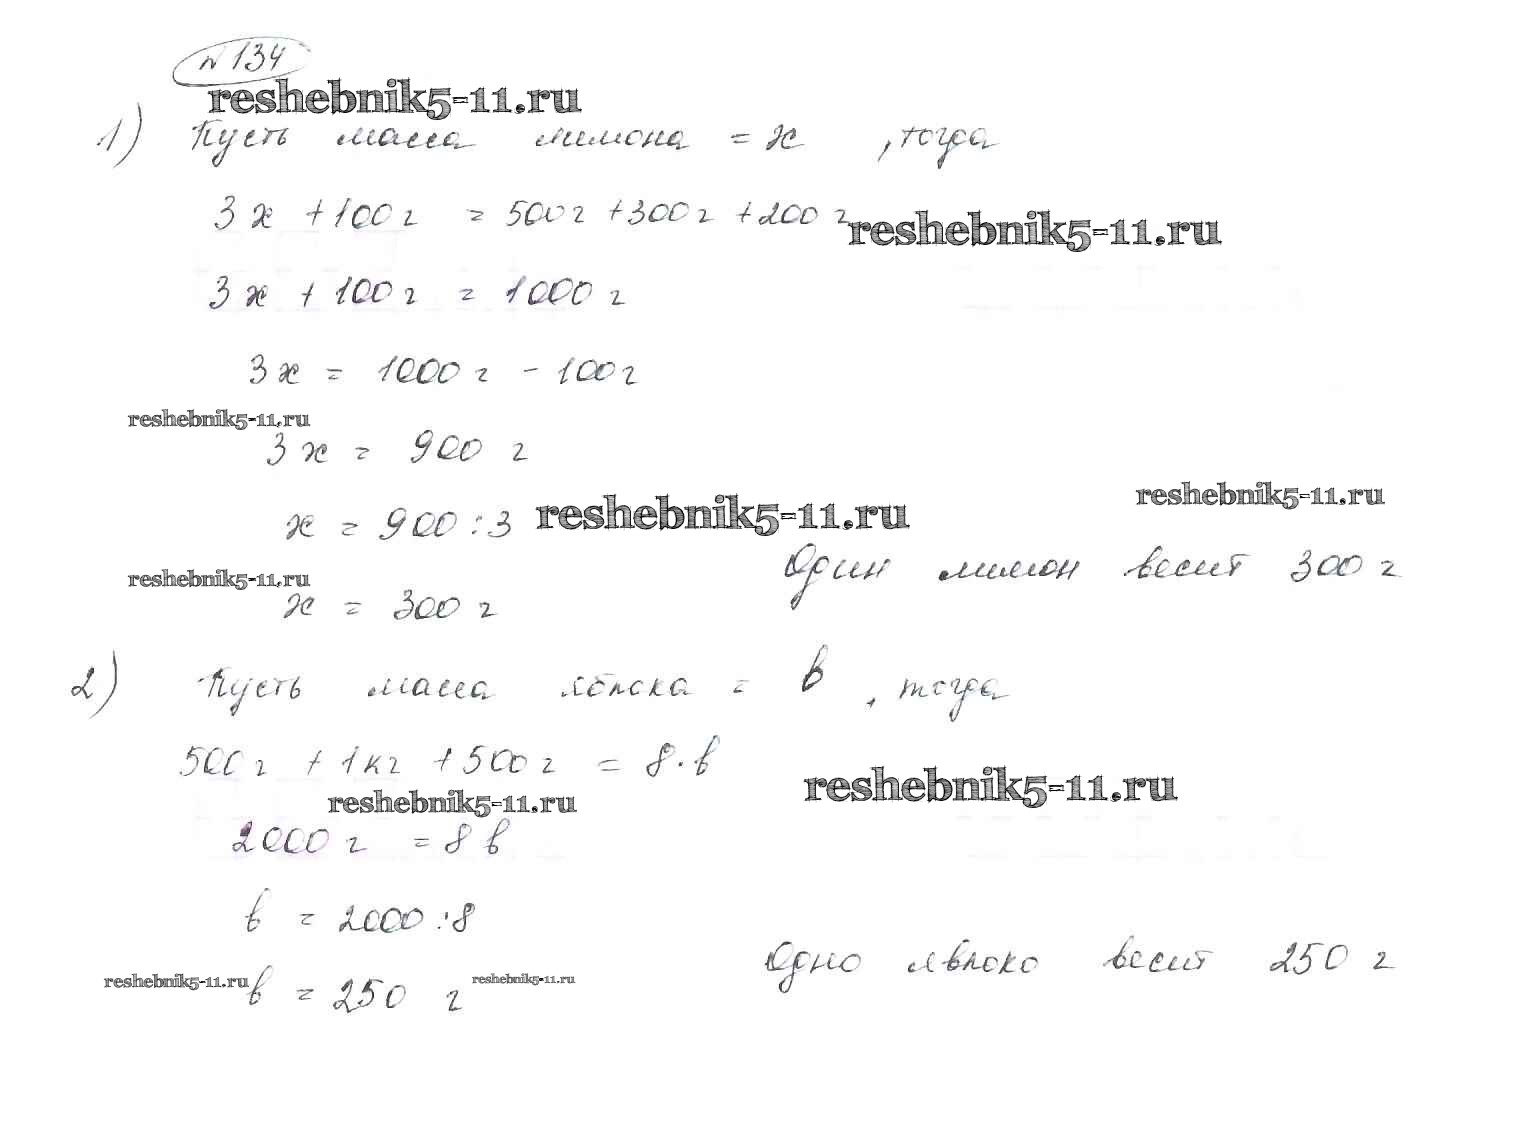 №134
reshebnik5-11.ru
1) Пусть масса лимона = х , тогда
3х + 100г = 500г + 300г + 200г
reshebnik5-11.ru
3х + 100г = 1000г
3х = 1000г - 100г
reshebnik5-11.ru
3х = 900 г
reshebnik5-11.ru
х = 900 : 3
reshebnik5-11.ru
Один лимон весит 300 г
reshebnik5-11.ru
х = 300 г
2) Пусть масса яблока = в , тогда
500г + 1кг + 500г = 8 · в
reshebnik5-11.ru
reshebnik5-11.ru
2000 г = 8 в
в = 2000 : 8
Одно яблоко весит 250 г
reshebnik5-11.ru
reshebnik5-11.ru
в = 250 г